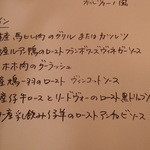 カルパッチョ風
産馬ヒレ肉のグリル または カツレツ
産ルアン鴨のロースト フランボワーズヴィネガーソース
ホホ肉のグーラッシュ
産鳩一羽のロースト ヴィンコットソース
産仔牛ロースとリードヴォーのロースト 黒トリュフソース
産乳飲み仔羊のロースト アンチョビソース